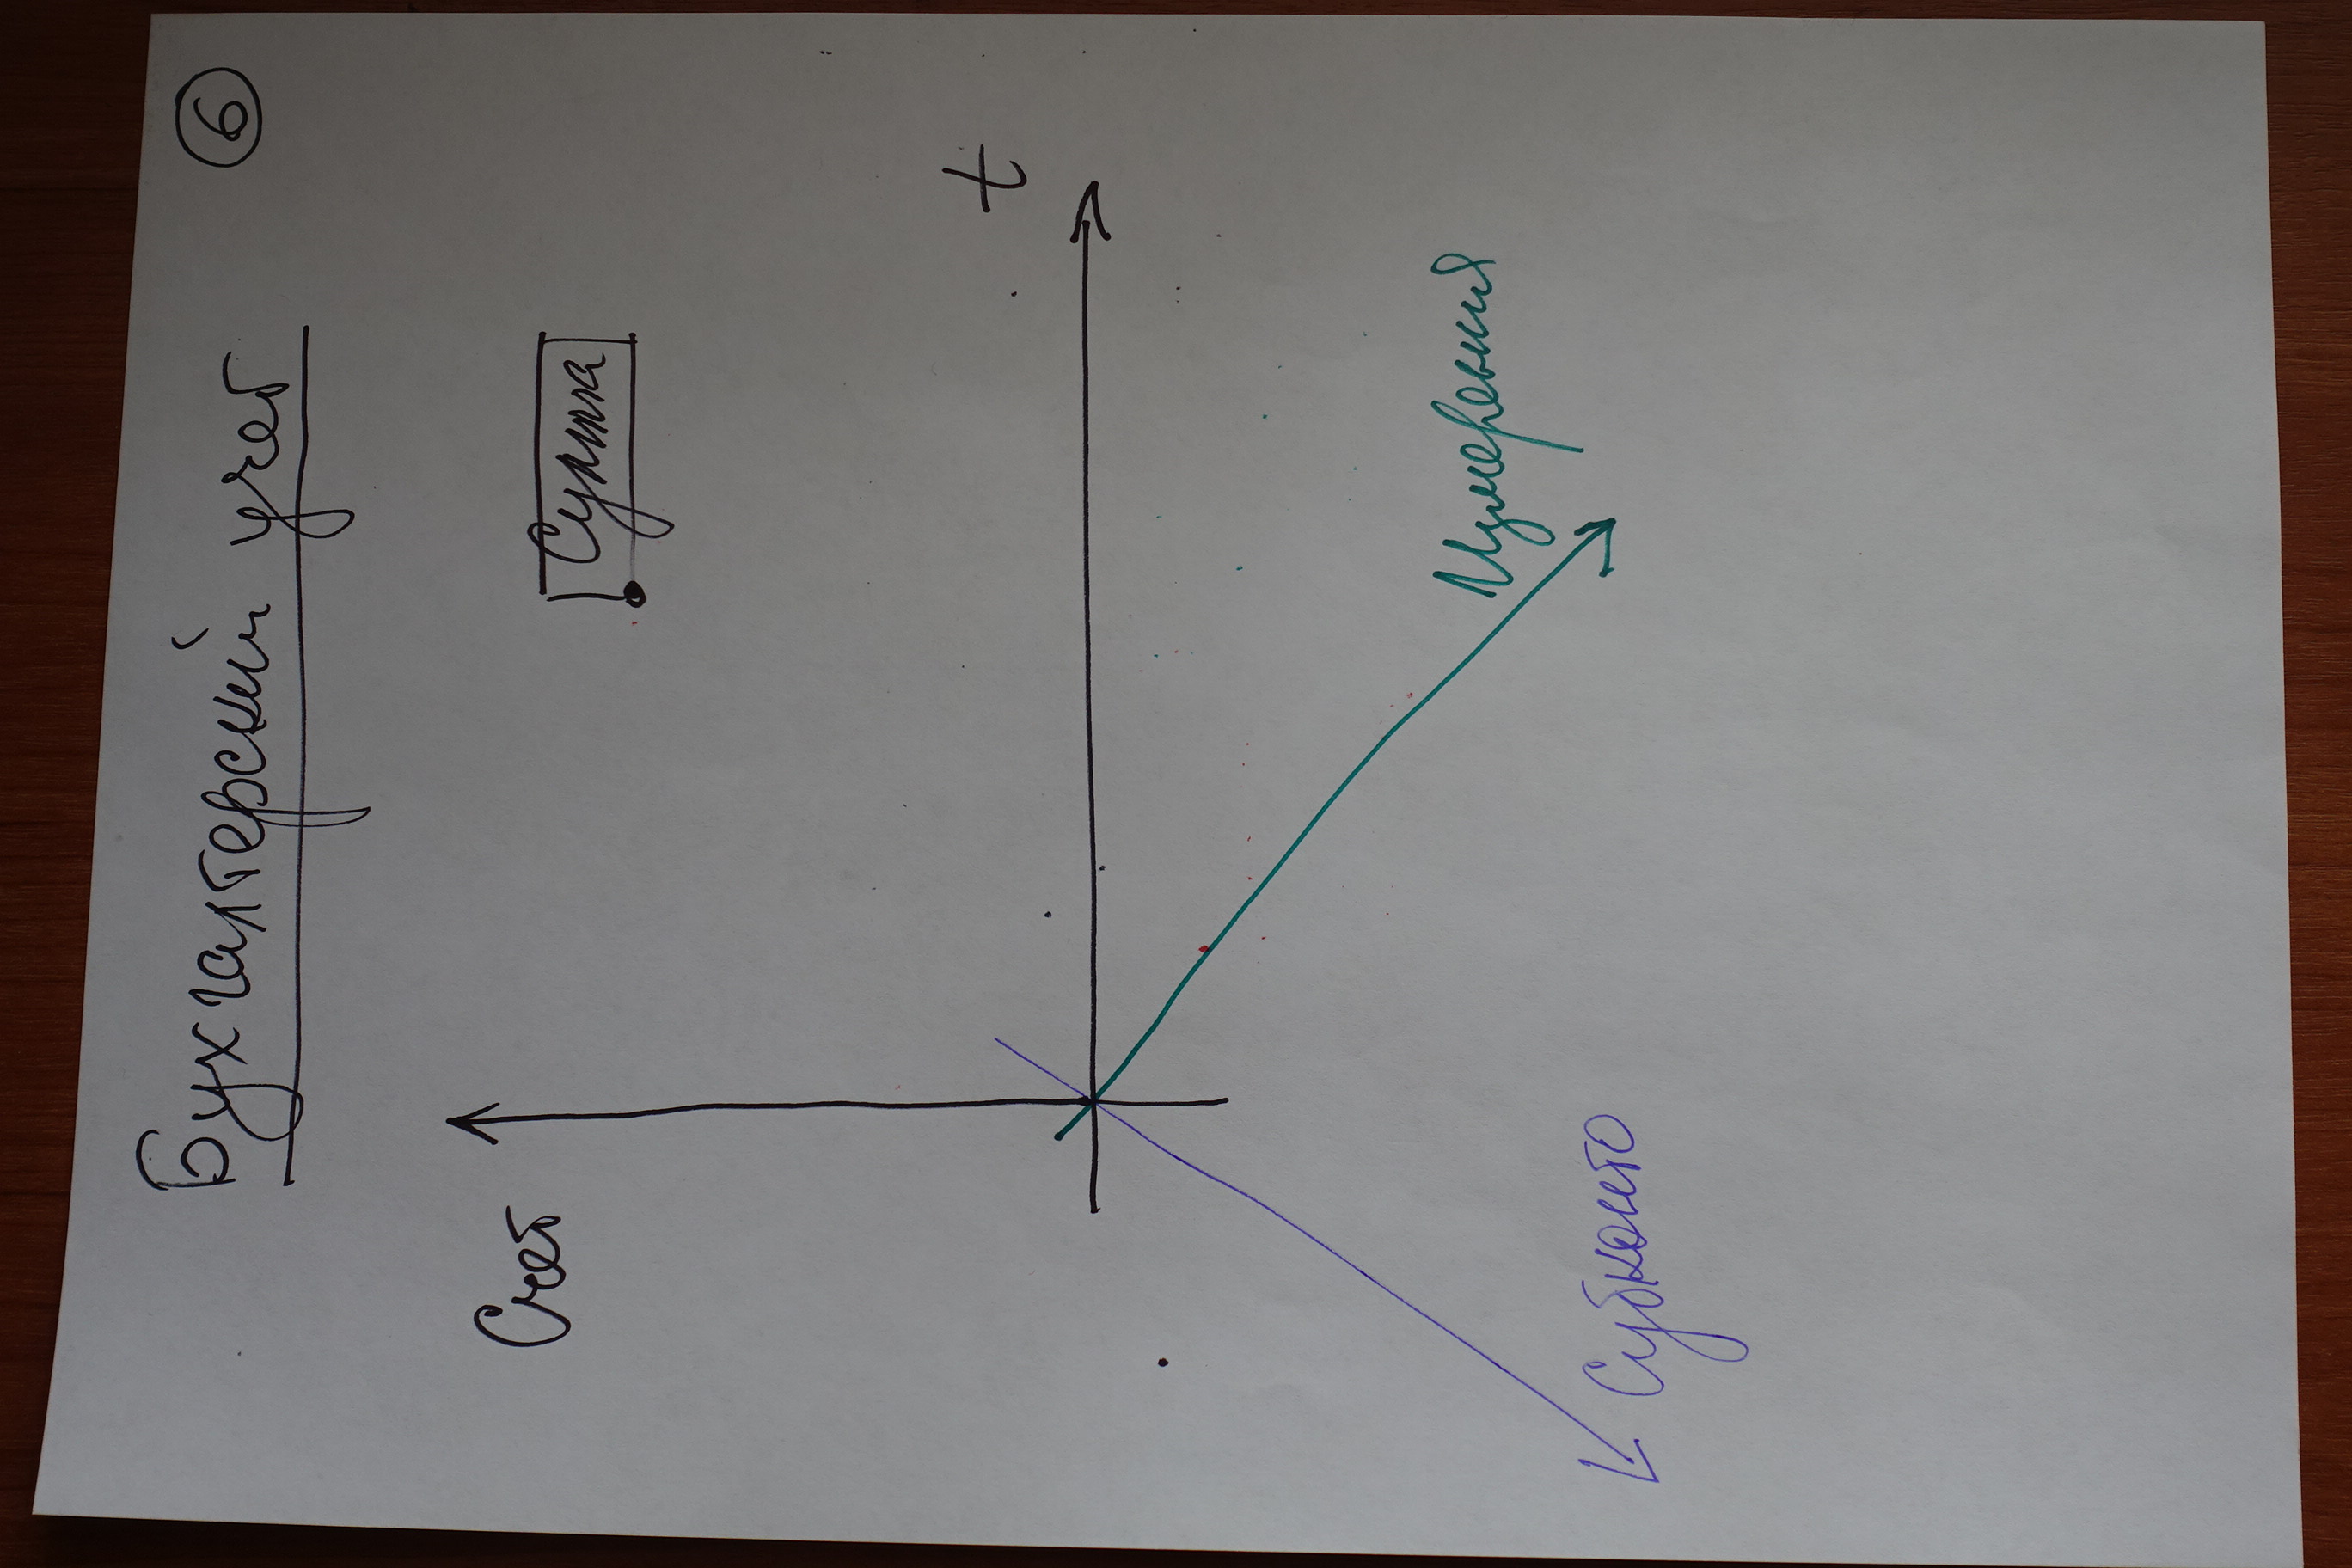 Бухгалтерский учет
6
Счет
Сумма
t
Измерения
Субконто